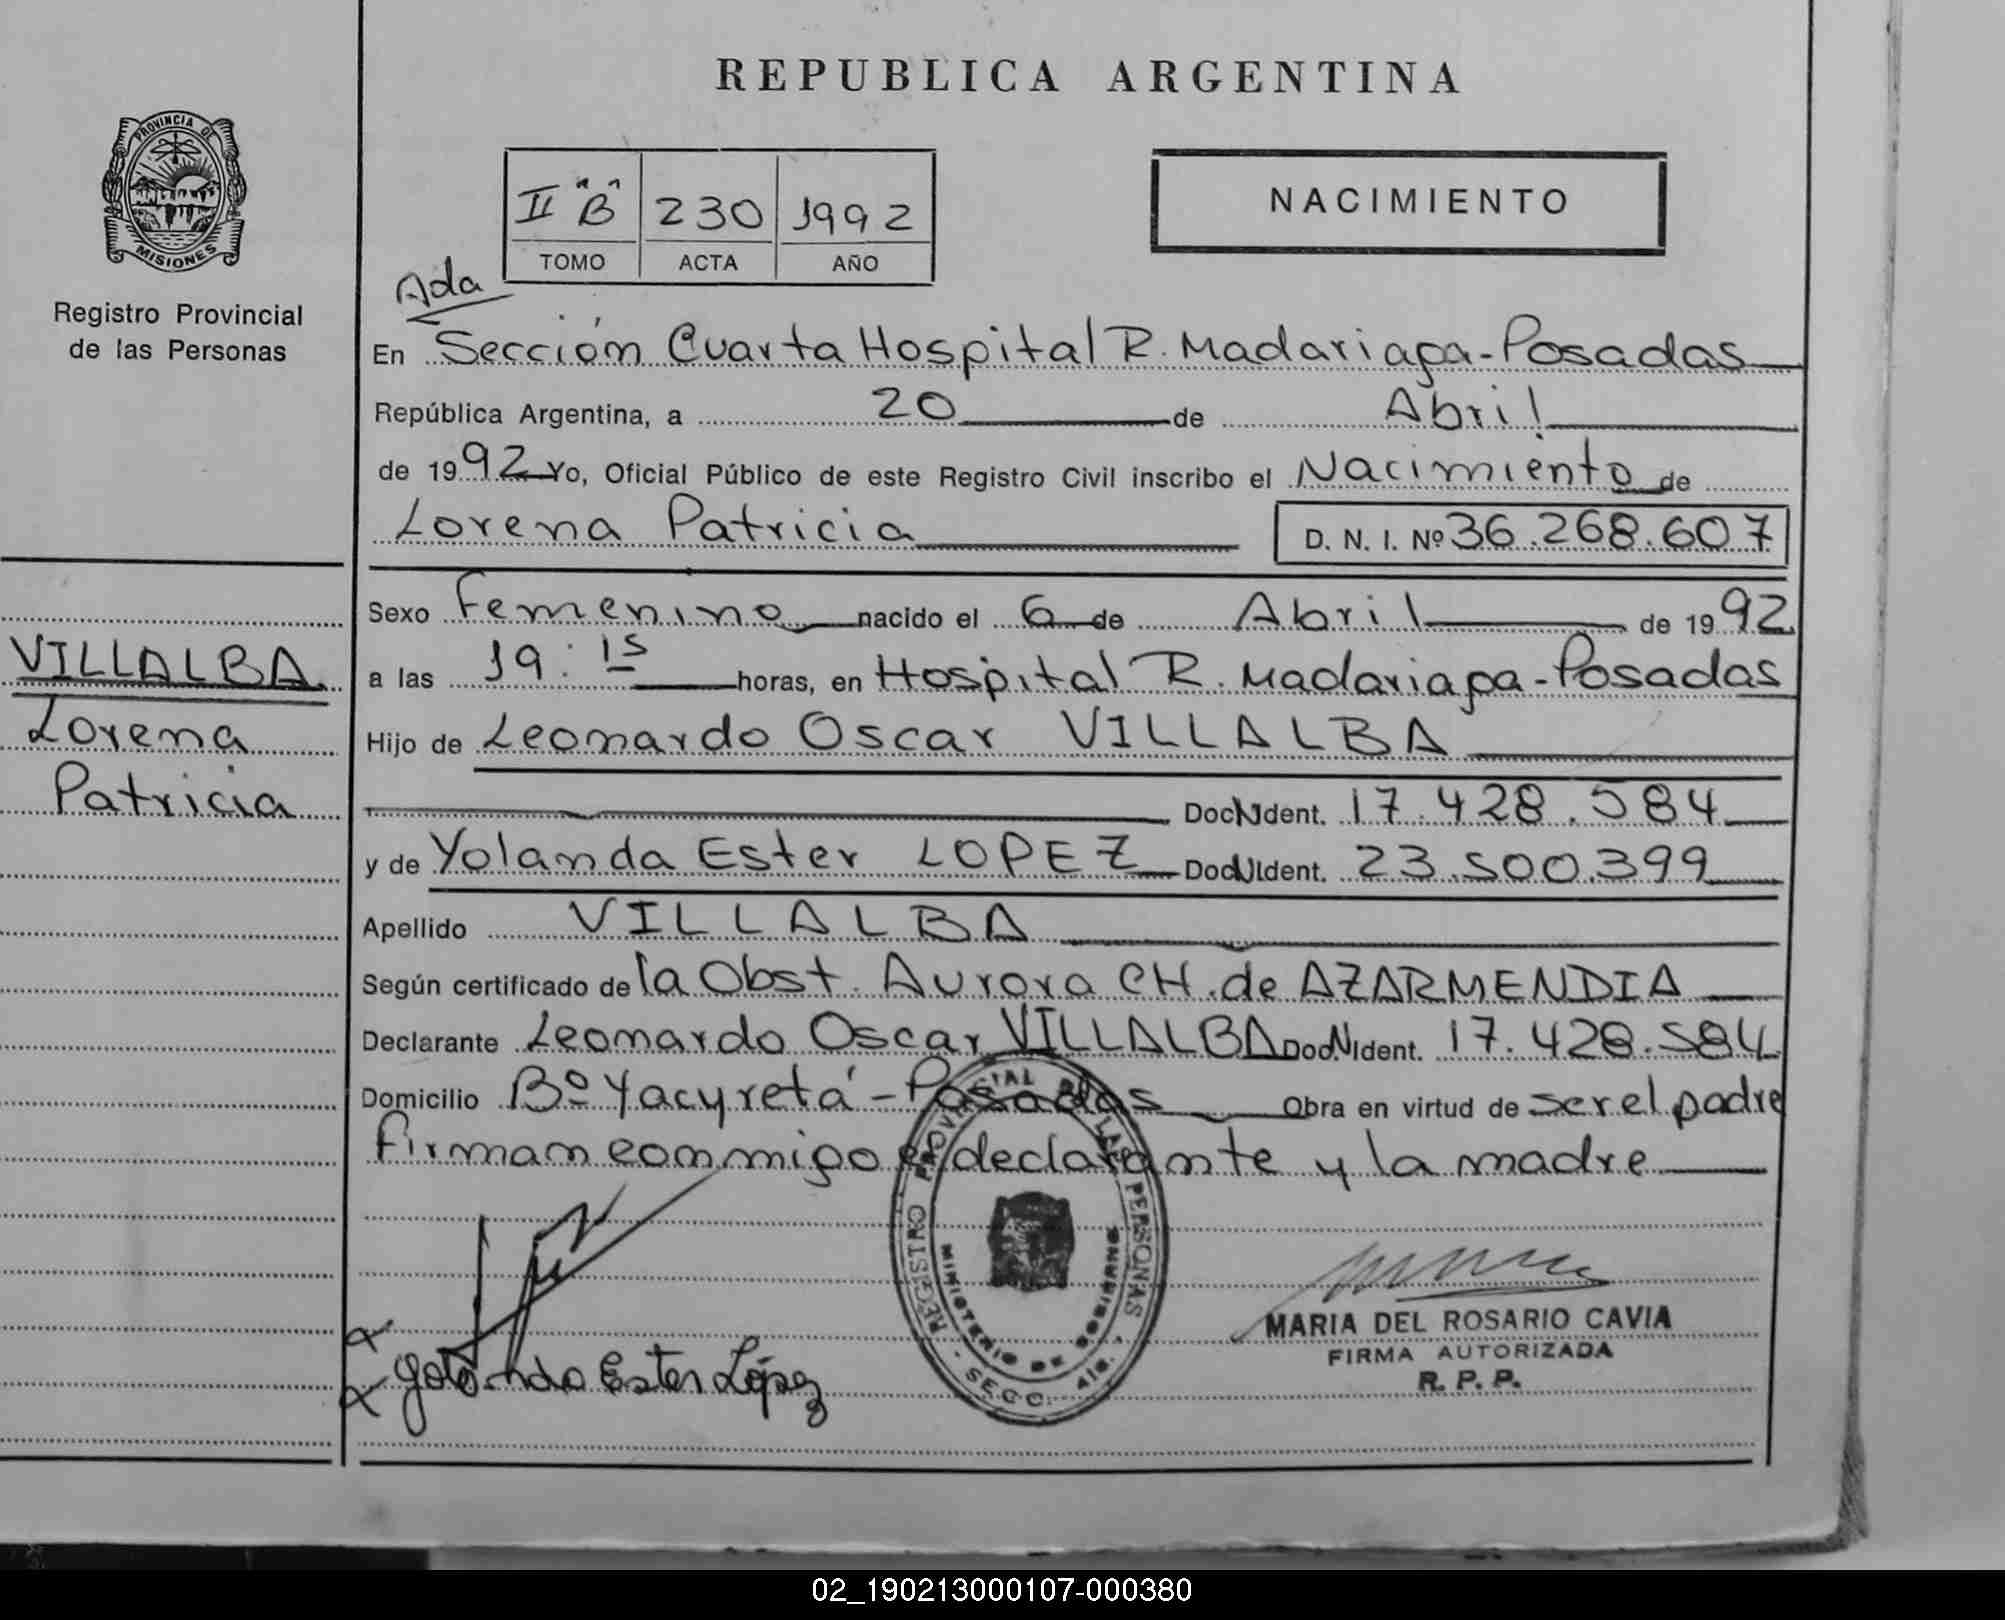 REPUBLICA ARGENTINA
PROVINCIA DE
MISIONES
Registro Provincial
de las Personas
II "B" 230 1992
TOMO ACTA AÑO
NACIMIENTO
Ada
En Sección Cuarta Hospital R. Madariaga-Posadas
República Argentina, a 20 de Abril
de 1992 Yo, Oficial Público de este Registro Civil inscribo el Nacimiento de
Lorena Patricia D. N. I. Nº 36.268.607
VILLALBA
Lorena
Patricia
Sexo Femenino nacido el 6 de Abril de 1992
a las 19:15 horas, en Hospital R. Madariaga-Posadas
Hijo de Leonardo Oscar VILLALBA
Doc.N.Ident. 17.428.584
y de Yolanda Ester LOPEZ Doc.N.Ident. 23.500.399
Apellido VILLALBA
Según certificado de la Obst. Aurora CH. de AZARMENDIA
Declarante Leonardo Oscar VILLALBA Doc.N.Ident. 17.428.584
Domicilio Bº Yacyretá-Posadas Obra en virtud de ser el padre
Firman conmigo el declarante y la madre
REGISTRO PROVINCIAL DE LAS PERSONAS
MINISTERIO DE GOBIERNO
SECC. 4ta.
Yolanda Ester López
MARIA DEL ROSARIO CAVIA
FIRMA AUTORIZADA
R. P. P.
02_190213000107-000380